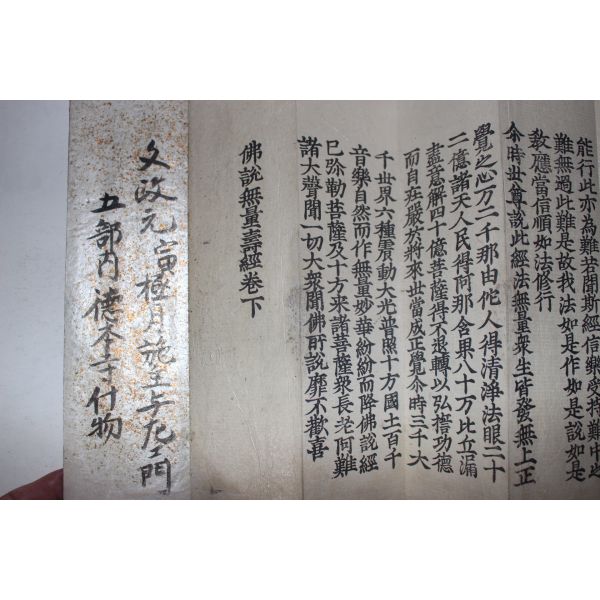 能行此亦為難若聞斯經信樂受持難中之
難無過此難是故我法如是作如是說如是
教應當信順如法修行
尒時世尊說此經法無量衆生皆發無上正
覺之心万二千那由他人得清淨法眼二十
二億諸天人民得阿那含果八十万比丘漏
盡意解四十億菩薩得不退轉以弘誓功德
而自莊嚴於將來世當成正覺尒時三千大
千世界六種震動大光普照十方國土百千
音樂自然而作無量妙華紛紛而降佛說經
已弥勒菩薩及十方来諸菩薩衆長老阿難
諸大聲聞一切大衆聞佛所說靡不歡喜
佛說無量壽經卷下
文政元寅極月施主与左エ門
五部内德本寺什物